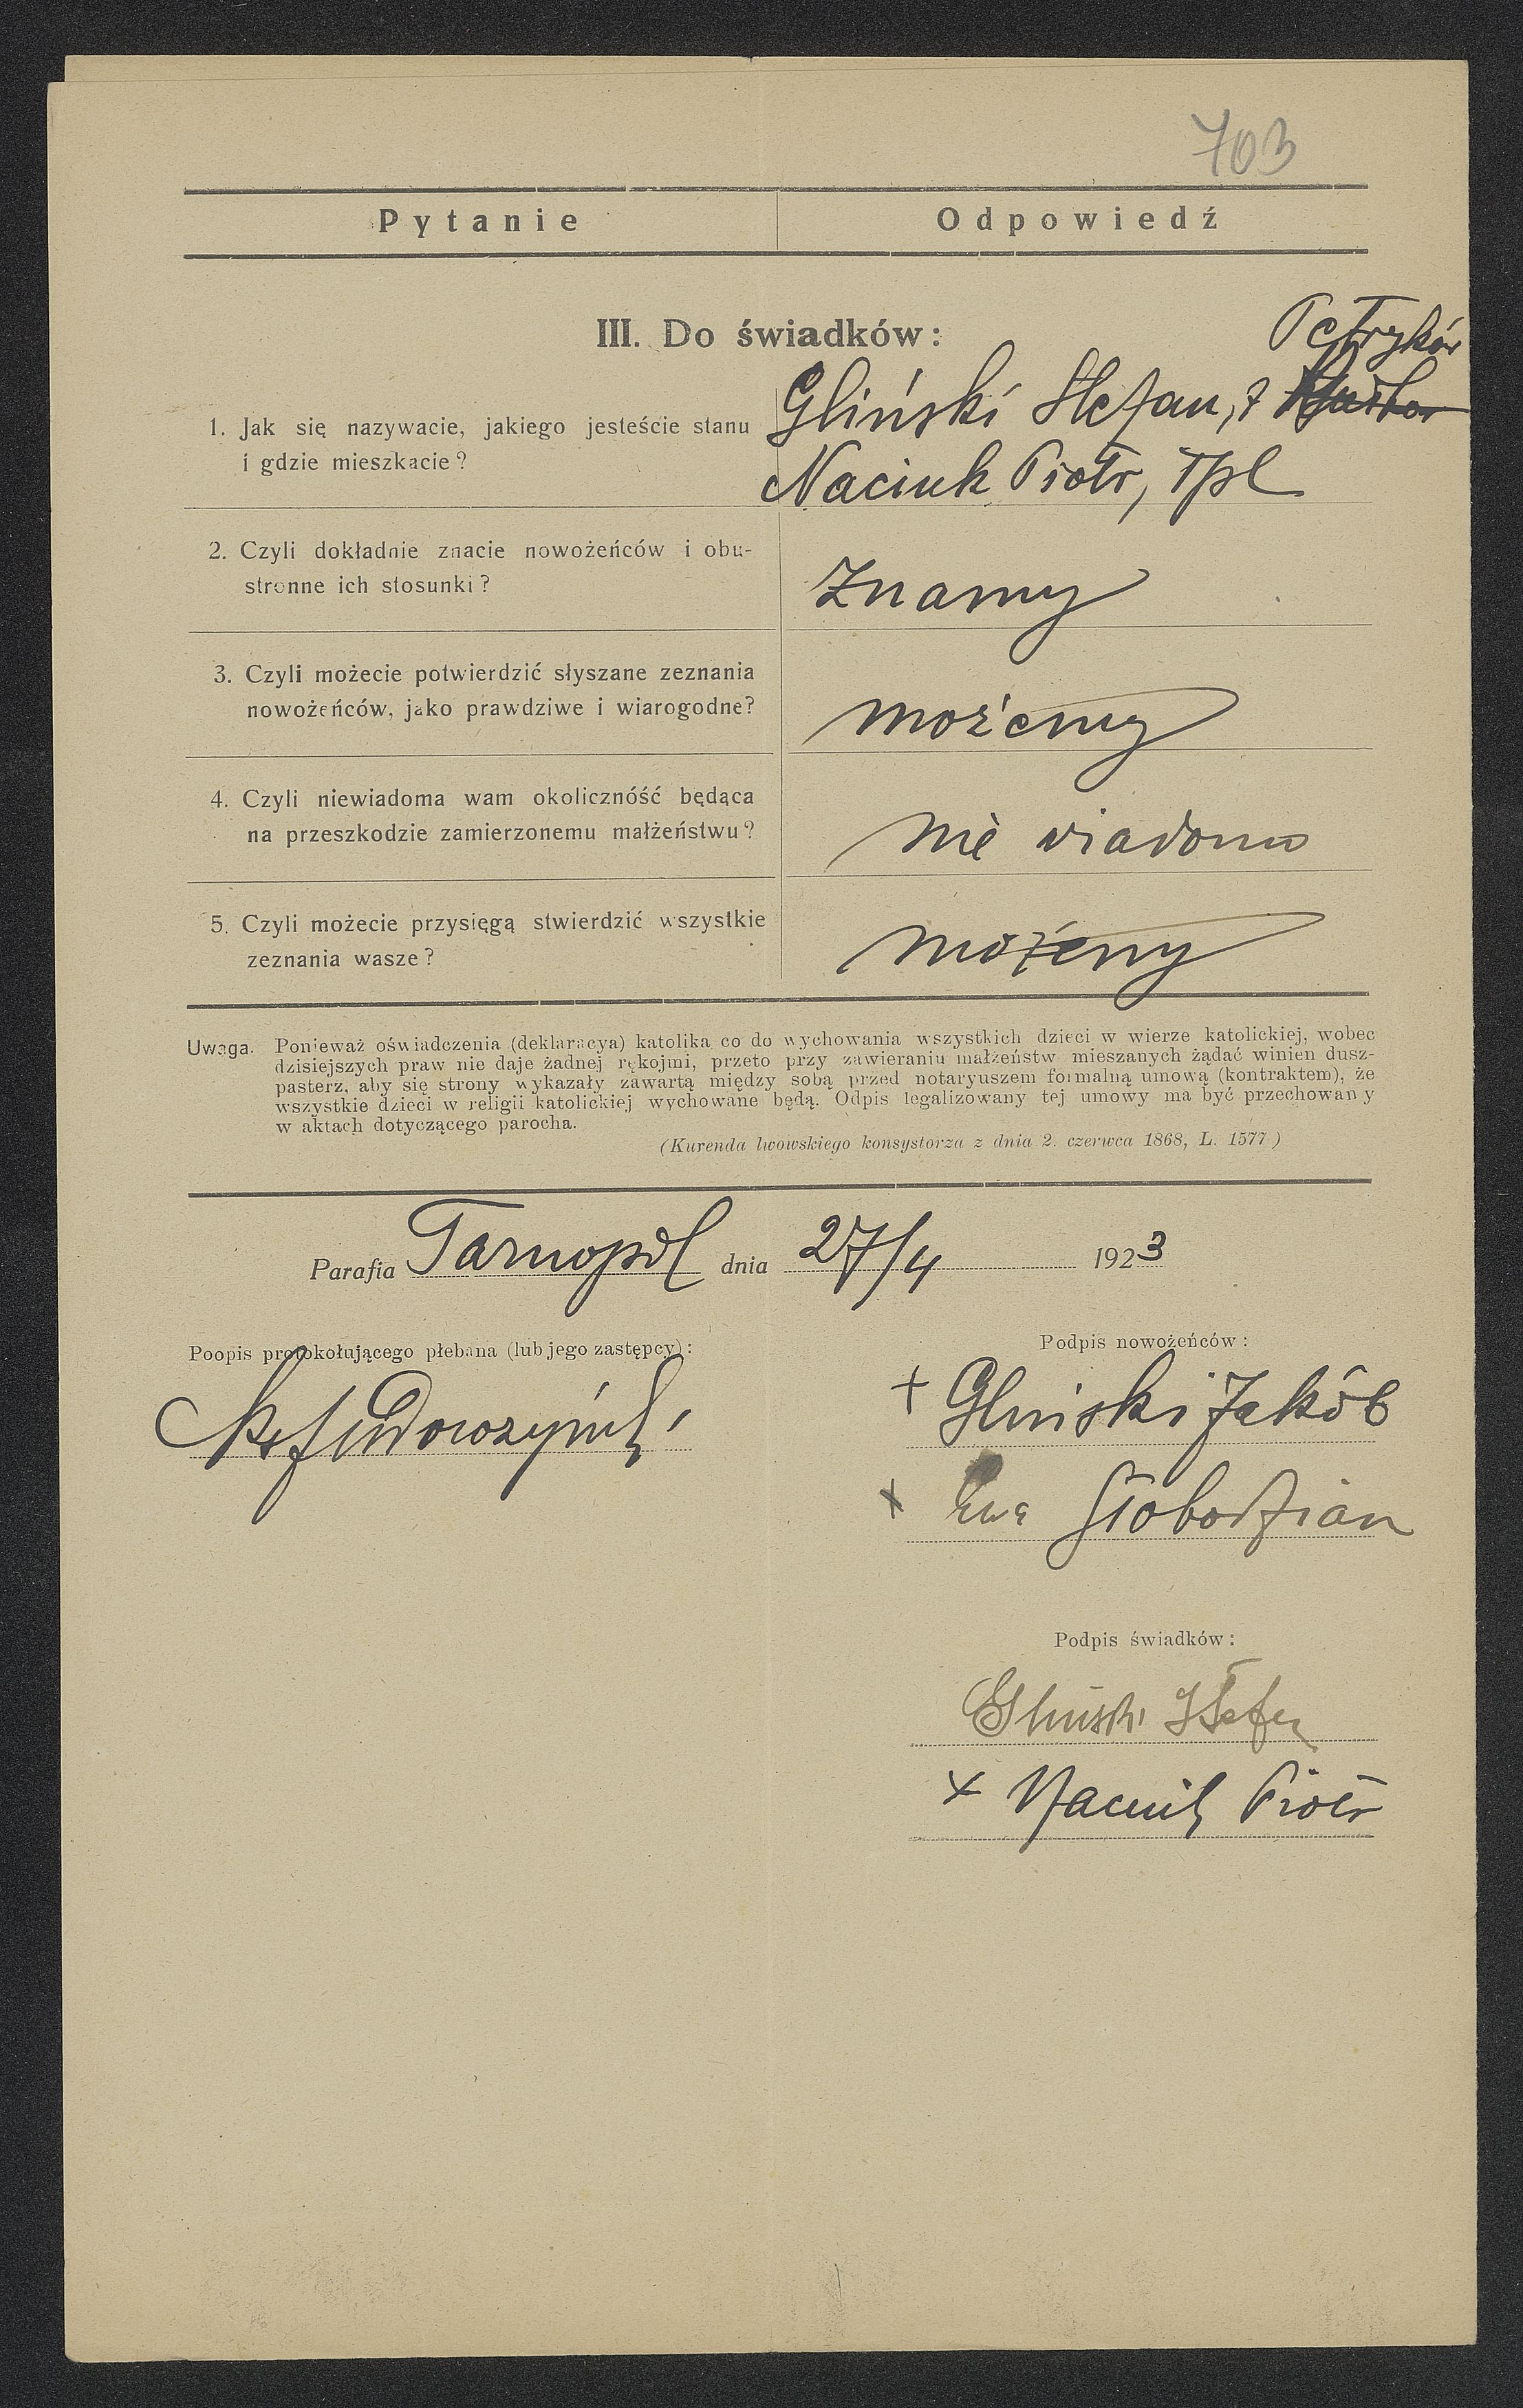 703
Pytanie
Odpowiedź
III. Do świadków:
Petryków
1. Jak się nazywacie, jakiego jesteście stanu
i gdzie mieszkacie?
Gliński Stefan, z
Naciuk Piotr, Tpl
2. Czyli dokładnie znacie nowożeńców i obu-
stronne ich stosunki?
Znamy
3. Czyli możecie potwierdzić słyszane zeznania
nowożeńców, jako prawdziwe i wiarogodne?
możemy
4. Czyli niewiadoma wam okolicznóść będąca
na przeszkodzie zamierzonemu małżeństwu?
nie wiadomo
5. Czyli możecie przysięgą stwierdzić wszystkie
zeznania wasze?
możemy
Uwaga. Ponieważ oświadczenia (deklaracya) katolika co do wychowania wszystkich dzieci w wierze katolickiej, wobec
dzisiejszych praw nie daje żadnej rękojmi, przeto przy zawieraniu małżeństw mieszanych żądać winien dusz-
pasterz, aby się strony wykazały zawartą między sobą przed notaryuszem formalną umową (kontraktem), że
wszystkie dzieci w religii katolickiej wychowane będą. Odpis legalizowany tej umowy ma być przechowany
w aktach dotyczącego parocha.
(Kurenda lwowskiego konsystorza z dnia 2. czerwca 1868, L. 1577)
Parafia Tarnopol dnia 27/4 1923
Poopis protokołującego plebana (lub jego zastępcy):
Podpis nowożeńców:
+ Gliński Jakób
+ Ewa Słobodzian
Podpis świadków:
Gliński Stefan
+ Naciuk Piotr